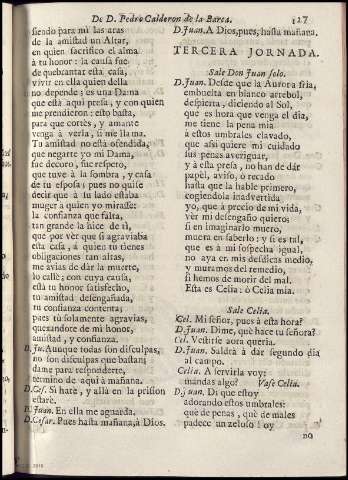 De D. Pedro Calderon de la Barca. 127
siendo para mi las aras
de la amistad un Altar,
en quien sacrifico el alma
à tu honor: la causa fue
de quebrantar esta casa,
vivir en ella quien della
no depende; es una Dama
que està aqui presa, y con quien
me prendieron: esto basta,
para que cortès, y amante
venga à verla, si me llama.
Tu amistad no està ofendida,
que negarte yo mi Dama,
fue decoro, fue respero,
que tuve à la sombra, y casa
de tu esposa; pues no quise
decir que à tu lado estaba
muger à quien yo mirasse:
la confianza que falta,
tan grande la hice de ti,
que por vèr que si agraviaba
esta casa, à quien tu tienes
obligaciones tan altas,
me avias de dàr la muerte,
lo callè; con cuya causa,
està tu honor satisfecho,
tu amistad desengañada,
tu confianza contenta;
pues tù solamente agravias,
quexandote de mi honor,
amistad, y confianza.
D. Ju. Aunque todas son disculpas,
no son disculpas que bastan:
dame para responderte,
termino de aqui à mañana.
D. Ces. Sì harè, y allà en la prision
estarè.
D. Juan. En ella me aguarda.
D. Cesar. Pues hasta mañana, à Dios.
D. Juan. A Dios, pues, hasta mañana.
TERCERA JORNADA.
Sale Don Juan solo.
D. Juan. Desde que la Aurora fria,
embuelta en blanco arrebol,
despierta, diciendo al Sol,
que es hora que venga el dia,
me tiene la pena mia
à estos umbrales clavado,
que assi quiere mi cuidado
sus penas averiguar,
y à esta presa, no han de dàr
papel, aviso, ò recado
hasta que la hable primero,
cogiendola inadvertida
yo, que à precio de mi vida,
vèr mi desengaño quiero;
si en imaginarlo muero,
muera en saberlo: y si es tal,
que es à mi sospecha igual,
no aya en mis desdichas medio,
y muramos del remedio,
si hemos de morir del mal.
Esta es Celia: ò Celia mia.
Sale Celia.
Cel. Mi señor, pues à esta hora?
D. Juan. Dime, què hace tu señora?
Cel. Vestirse aora queria.
D. Juan. Saldrà à dàr segundo dia
al campo.
Celia. A servirla voy:
mandas algo? Vase Celia.
D. Juan. Dì que estoy
adorando estos umbrales:
què de penas, què de males
padece un zeloso! oy
no